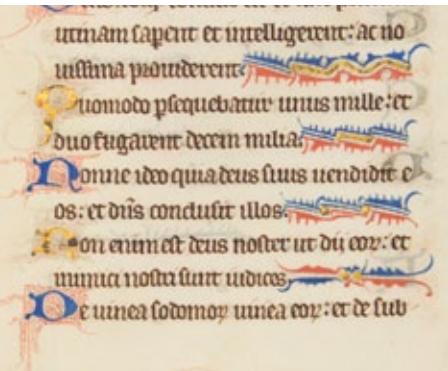 utinam saperent et intelligerent: ac no
uissima prouiderent.
Quomodo psequebatur unus mille: et
duo fugarent decem milia.
Nonne ideo quia deus suus uendidit e
os: et dn̄s conclusit illos.
Non enim est deus noster ut dii eoꝝ: et
inimici nostri sunt iudices.
De uinea sodomoꝝ uinea eoꝝ: et de sub